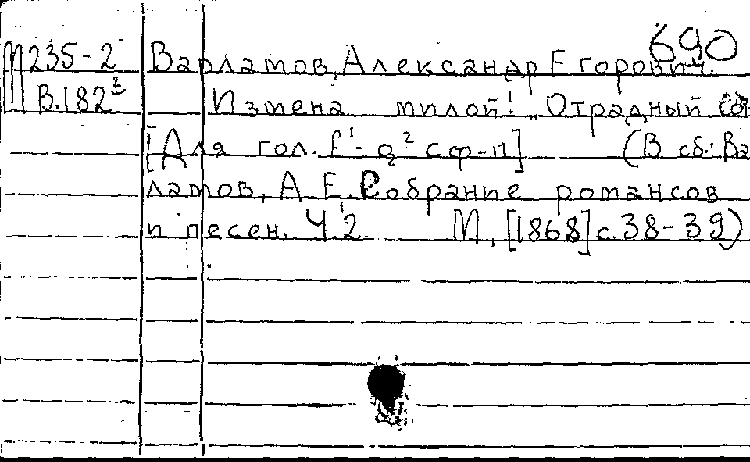 690
М235-2 Варламов, Александр Егорович.
В.182³ Измена милой! „Отрадный сон
[Для гол. f¹-g² с ф-п] (В сб: Ва
ламов, А. Е. Собрание романсов
и песен. Ч.2 М, [1868] с.38-39)